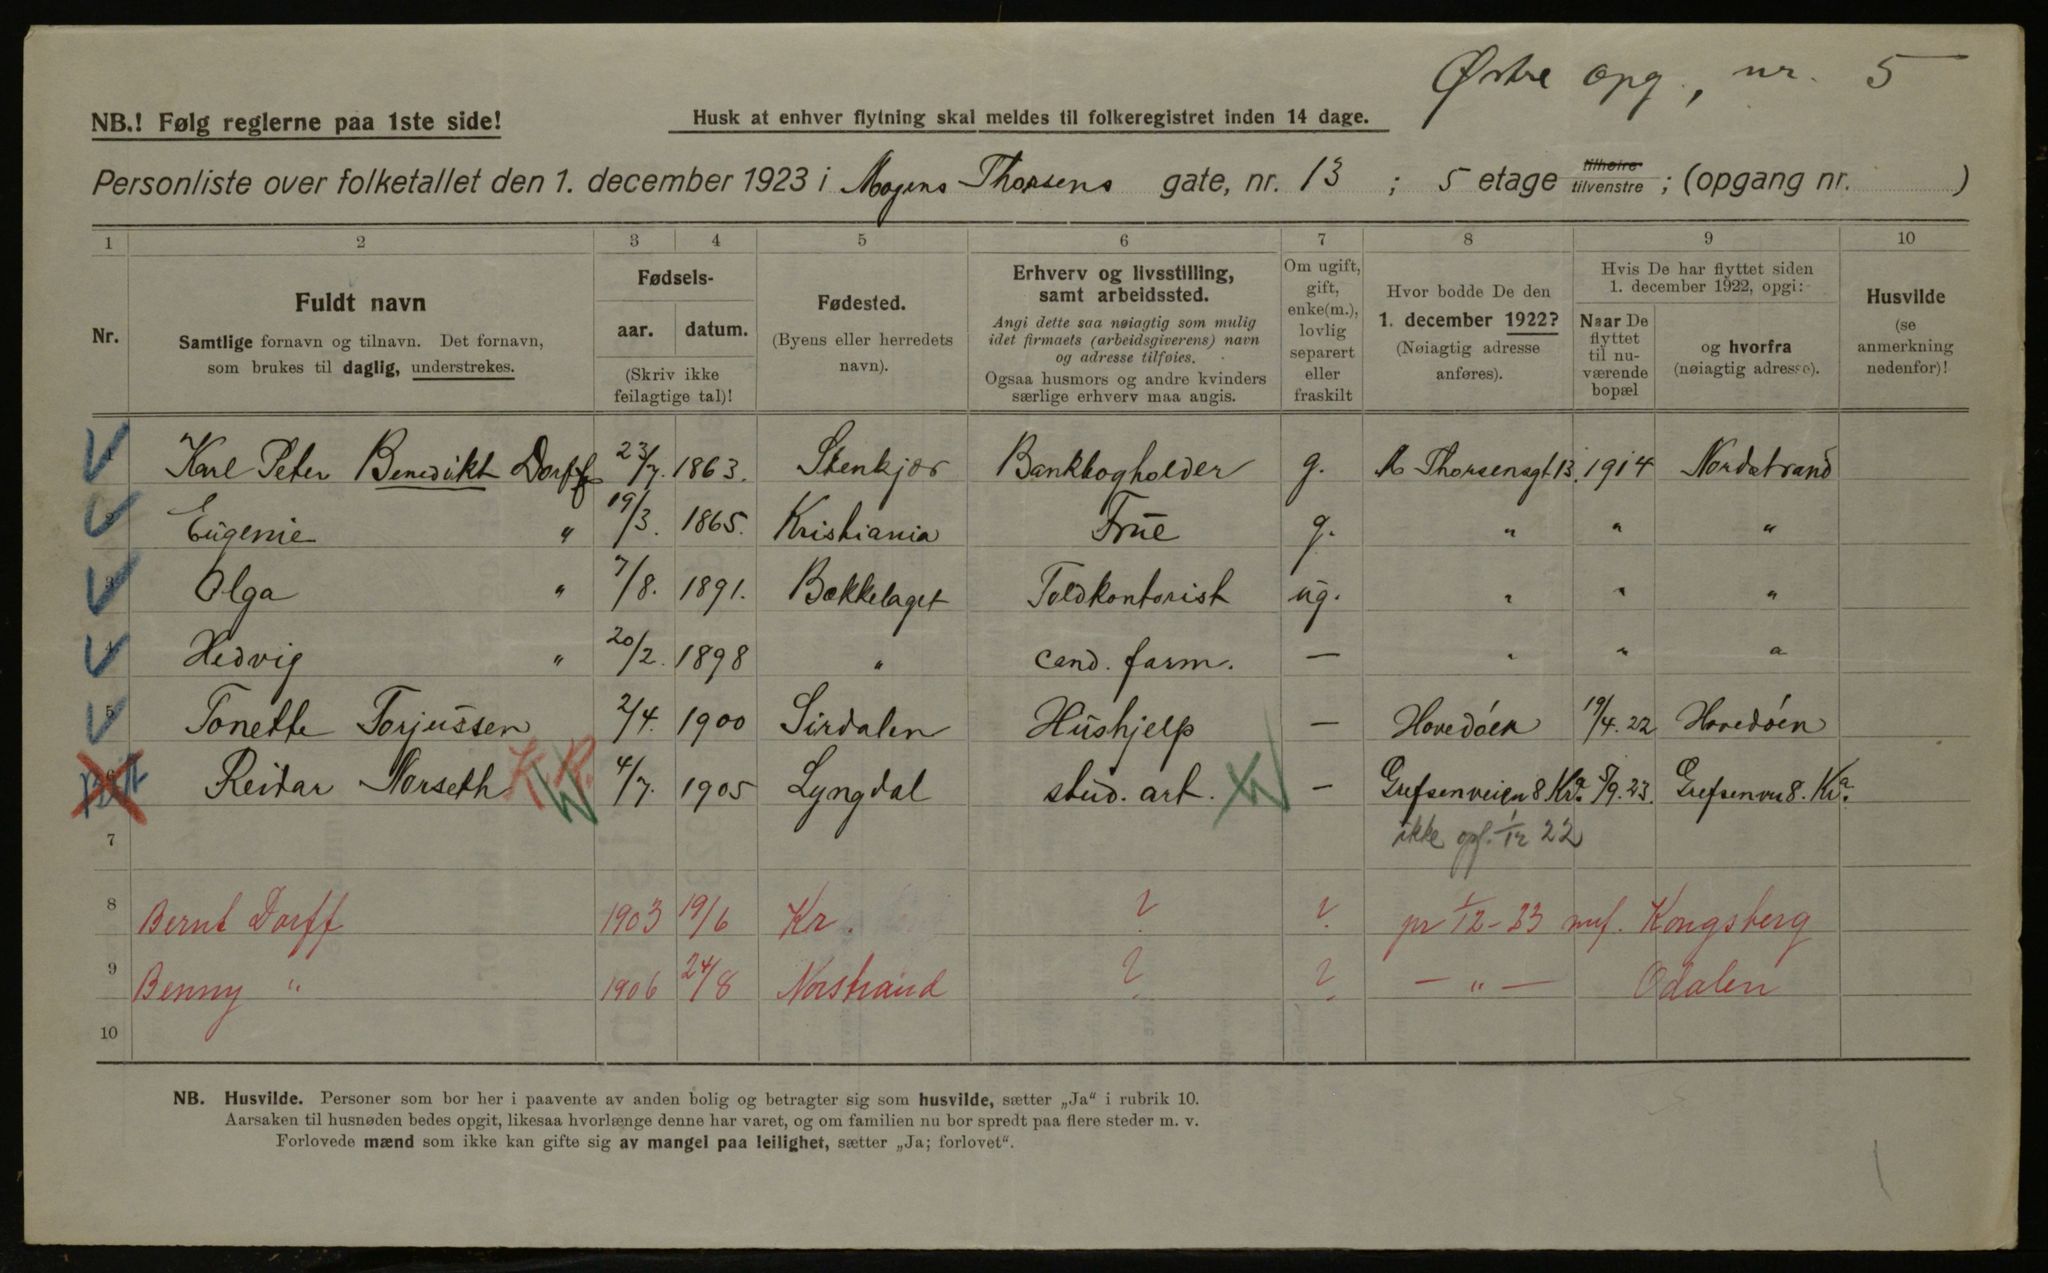 Østre opg., nr. 5
NB.! Følg reglerne paa 1ste side!
Husk at enhver flytning skal meldes til folkeregistret inden 14 dage.
Personliste over folketallet den 1. december 1923 i Mogens Thorsens gate, nr. 13 ; 5 etage tilhøire tilvenstre ; (opgang nr. )
1 2 3 4 5 6 7 8 9 10
Nr.
Fuldt navn
Samtlige fornavn og tilnavn. Det fornavn,
som brukes til daglig, understrekes.
Fødsels-
aar. datum.
(Skriv ikke
feilagtige tal)!
Fødested.
(Byens eller herredets
navn).
Erhverv og livsstilling,
samt arbeidssted.
Angi dette saa nøiagtig som mulig
idet firmaets (arbeidsgiverens) navn
og adresse tilføies.
Ogsaa husmors og andre kvinders
særlige erhverv maa angis.
Om ugift,
gift,
enke(m.),
lovlig
separert
eller
fraskilt
Hvor bodde De den
1. december 1922?
(Nøiagtig adresse
anføres).
Hvis De har flyttet siden
1. december 1922, opgi:
Naar De
flyttet
til nu-
værende
bopæl
og hvorfra
(nøiagtig adresse).
Husvilde
(se
anmerkning
nedenfor)!
1 Karl Peter Benedikt Dorff 23/7. 1863. Stenkjær Bankbogholder g. M Thorsensgt 13. 1914 Nordstrand
2 Eugenie " 19/3. 1865. Kristiania Frue g. " " "
3 Olga " 7/8. 1891. Bækkelaget Toldkontorist ug. " " "
4 Hedvig " 20/2. 1898 " cand. farm. — " " "
5 Tonette Torjussen 2/4. 1900 Sirdalen Hushjelp — Hovedøen 19/4. 22 Hovedøen
6 Reidar Norseth K. R. 4/7. 1905 Lyngdal stud. art. — Grefsenveien 8 Kra. 5/9. 23. Grefsenvn 8. Kra.
7 ikke opf. 1/12 22
8 Bernt Dorff 1903 19/6 Kr. ? ? pr 1/12-23 Kongsberg
9 Benny " 1906 24/8 Norstrand ? ? — " — Odalen
10
NB. Husvilde. Personer som bor her i paavente av anden bolig og betragter sig som husvilde, sætter „Ja“ i rubrik 10.
Aarsaken til husnøden bedes opgit, likesaa hvorlænge denne har varet, og om familien nu bor spredt paa flere steder m. v.
Forlovede mænd som ikke kan gifte sig av mangel paa leilighet, sætter „Ja; forlovet“.